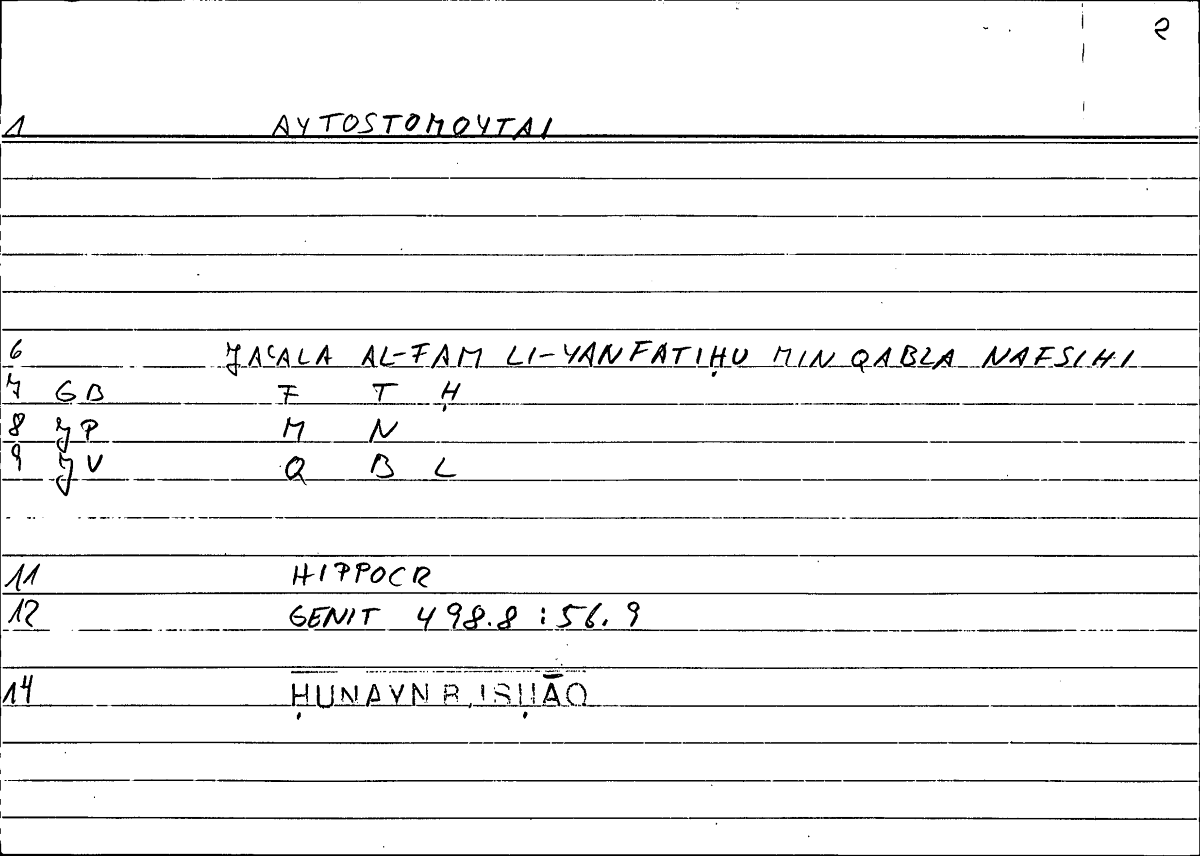 2
1 AYTOSTOMOYTAI
6 JAʿALA AL-FAM LI-YANFATIḤU MIN QABLA NAFSIHI
7 GB F T Ḥ
8 JP M N
9 JV Q B L
11 HIPPOCR
12 GENIT 498.8 : 56.9
14 ḤUNAYN B. ISḤĀQ